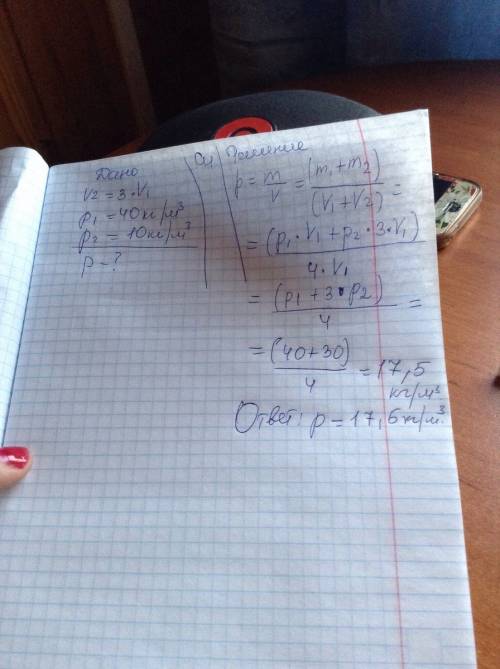 Дано
V2 = 3·V1
p1 = 40кг/м³
p2 = 10кг/м³
p - ?
Си
Решение
p = m/V = (m1+m2)/(V1+V2) =
= (p1·V1+p2·3·V1)/4·V1
= (p1+3·p2)/4 =
= (40+30)/4 = 17,5
кг/м³
Ответ: p = 17,5кг/м³